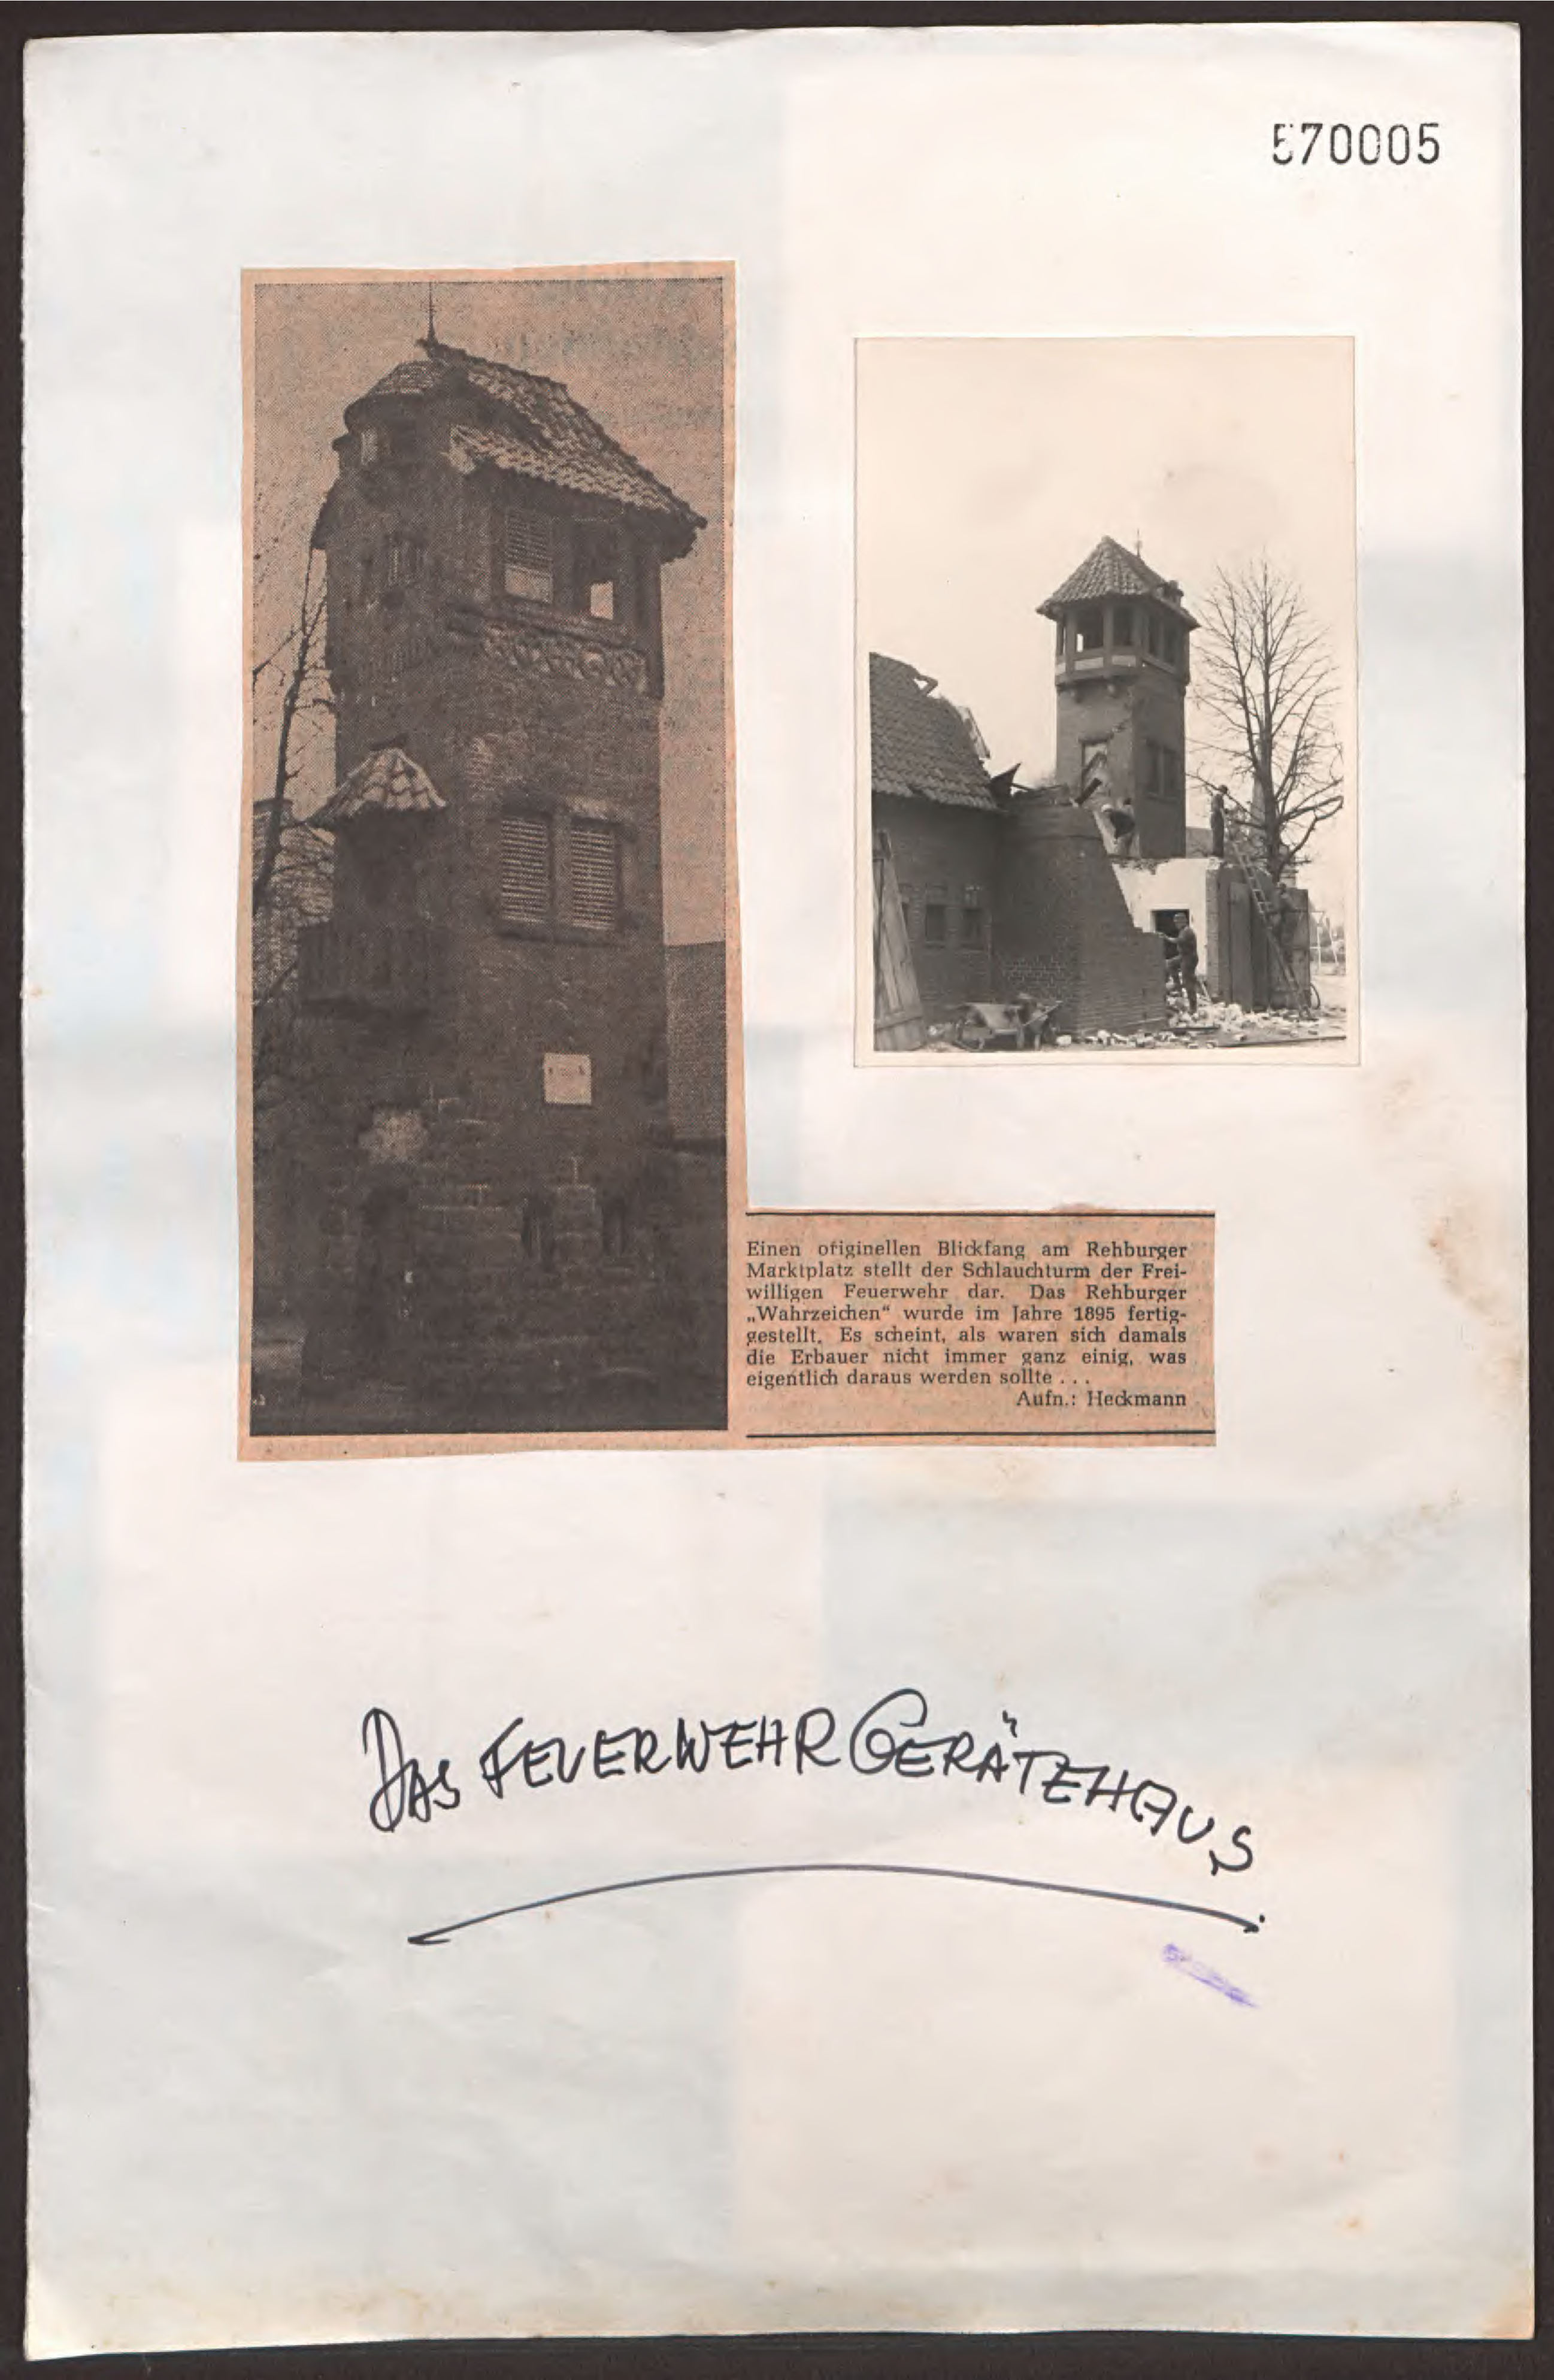 570005
Einen originellen Blickfang am Rehburger
Marktplatz stellt der Schlauchturm der Frei-
willigen Feuerwehr dar. Das Rehburger
„Wahrzeichen“ wurde im Jahre 1895 fertig-
gestellt. Es scheint, als waren sich damals
die Erbauer nicht immer ganz einig, was
eigentlich daraus werden sollte . . .
Aufn.: Heckmann
DAS FEUERWEHR GERÄTEHAUS